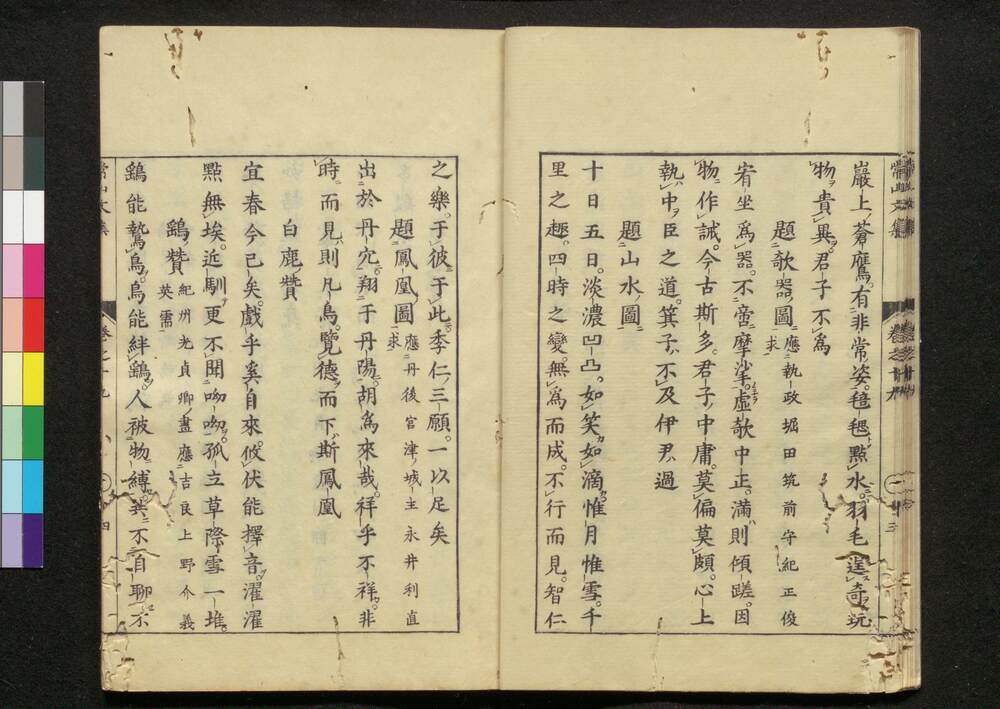 常山文集
卷之十九
巖上蒼鷹有非常姿毰毸點水羽毛逞奇玩
物貴異君子不爲
題欹器圖 應執政堀田筑前守紀正俊求
宥坐爲器不啻摩挲虛欹中正滿則傾蹉因
物作誡今古斯多君子中庸莫偏莫頗心上
執中臣之道箕子不及伊尹過
題山水圖
十日五日淡濃凹凸如笑如滴惟月惟雪千
里之趣四時之變無爲而成不行而見智仁
之樂于彼于此季仁三願一以足矣
題鳳凰圖 應丹後宮津城主永井利直求
出於丹穴翔于丹陽胡爲來哉祥乎不祥非
時而見則凡鳥覽德而下斯鳳凰
白鹿贊
宜春今已矣戲乎奚自來攸伏能擇音濯濯
點無埃近馴更不聞呦呦孤立草際雪一堆
鷂贊 紀州光貞卿畫應吉良上野介義
英需
鷂能鷙鳥鳥能絆鷂人被物縛異不自聊不